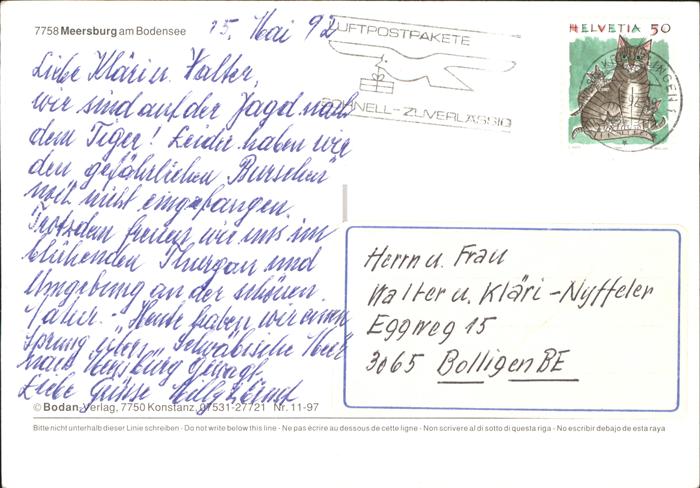 7758 Meersburg am Bodensee
15. Mai 92
LUFTPOSTPAKETE
SCHNELL - ZUVERLÄSSIG
HELVETIA 50
KREUZLINGEN 1
Liebe Kläri u. Walter,
wir sind auf der Jagd nach
dem Tiger! Leider haben wir
den gefährlichen "Burschen"
noch nicht eingefangen.
Trotzdem freuen wir uns im
blühenden Thurgau und
Umgebung an der schönen
Natur. - Heute haben wir einen
Sprung übers "Schwäbische Meer"
nach Meersburg gewagt.
Liebe Grüsse Willy
Herrn u. Frau
Walter u. Kläri - Nyffeler
Eggweg 15
3065 Bolligen BE
© Bodan-Verlag, 7750 Konstanz, 07531-27721 Nr. 11-97
Bitte nicht unterhalb dieser Linie schreiben - Do not write below this line - Ne pas écrire au dessous de cette ligne - Non scrivere al di sotto di questa riga - No escribir debajo de esta raya